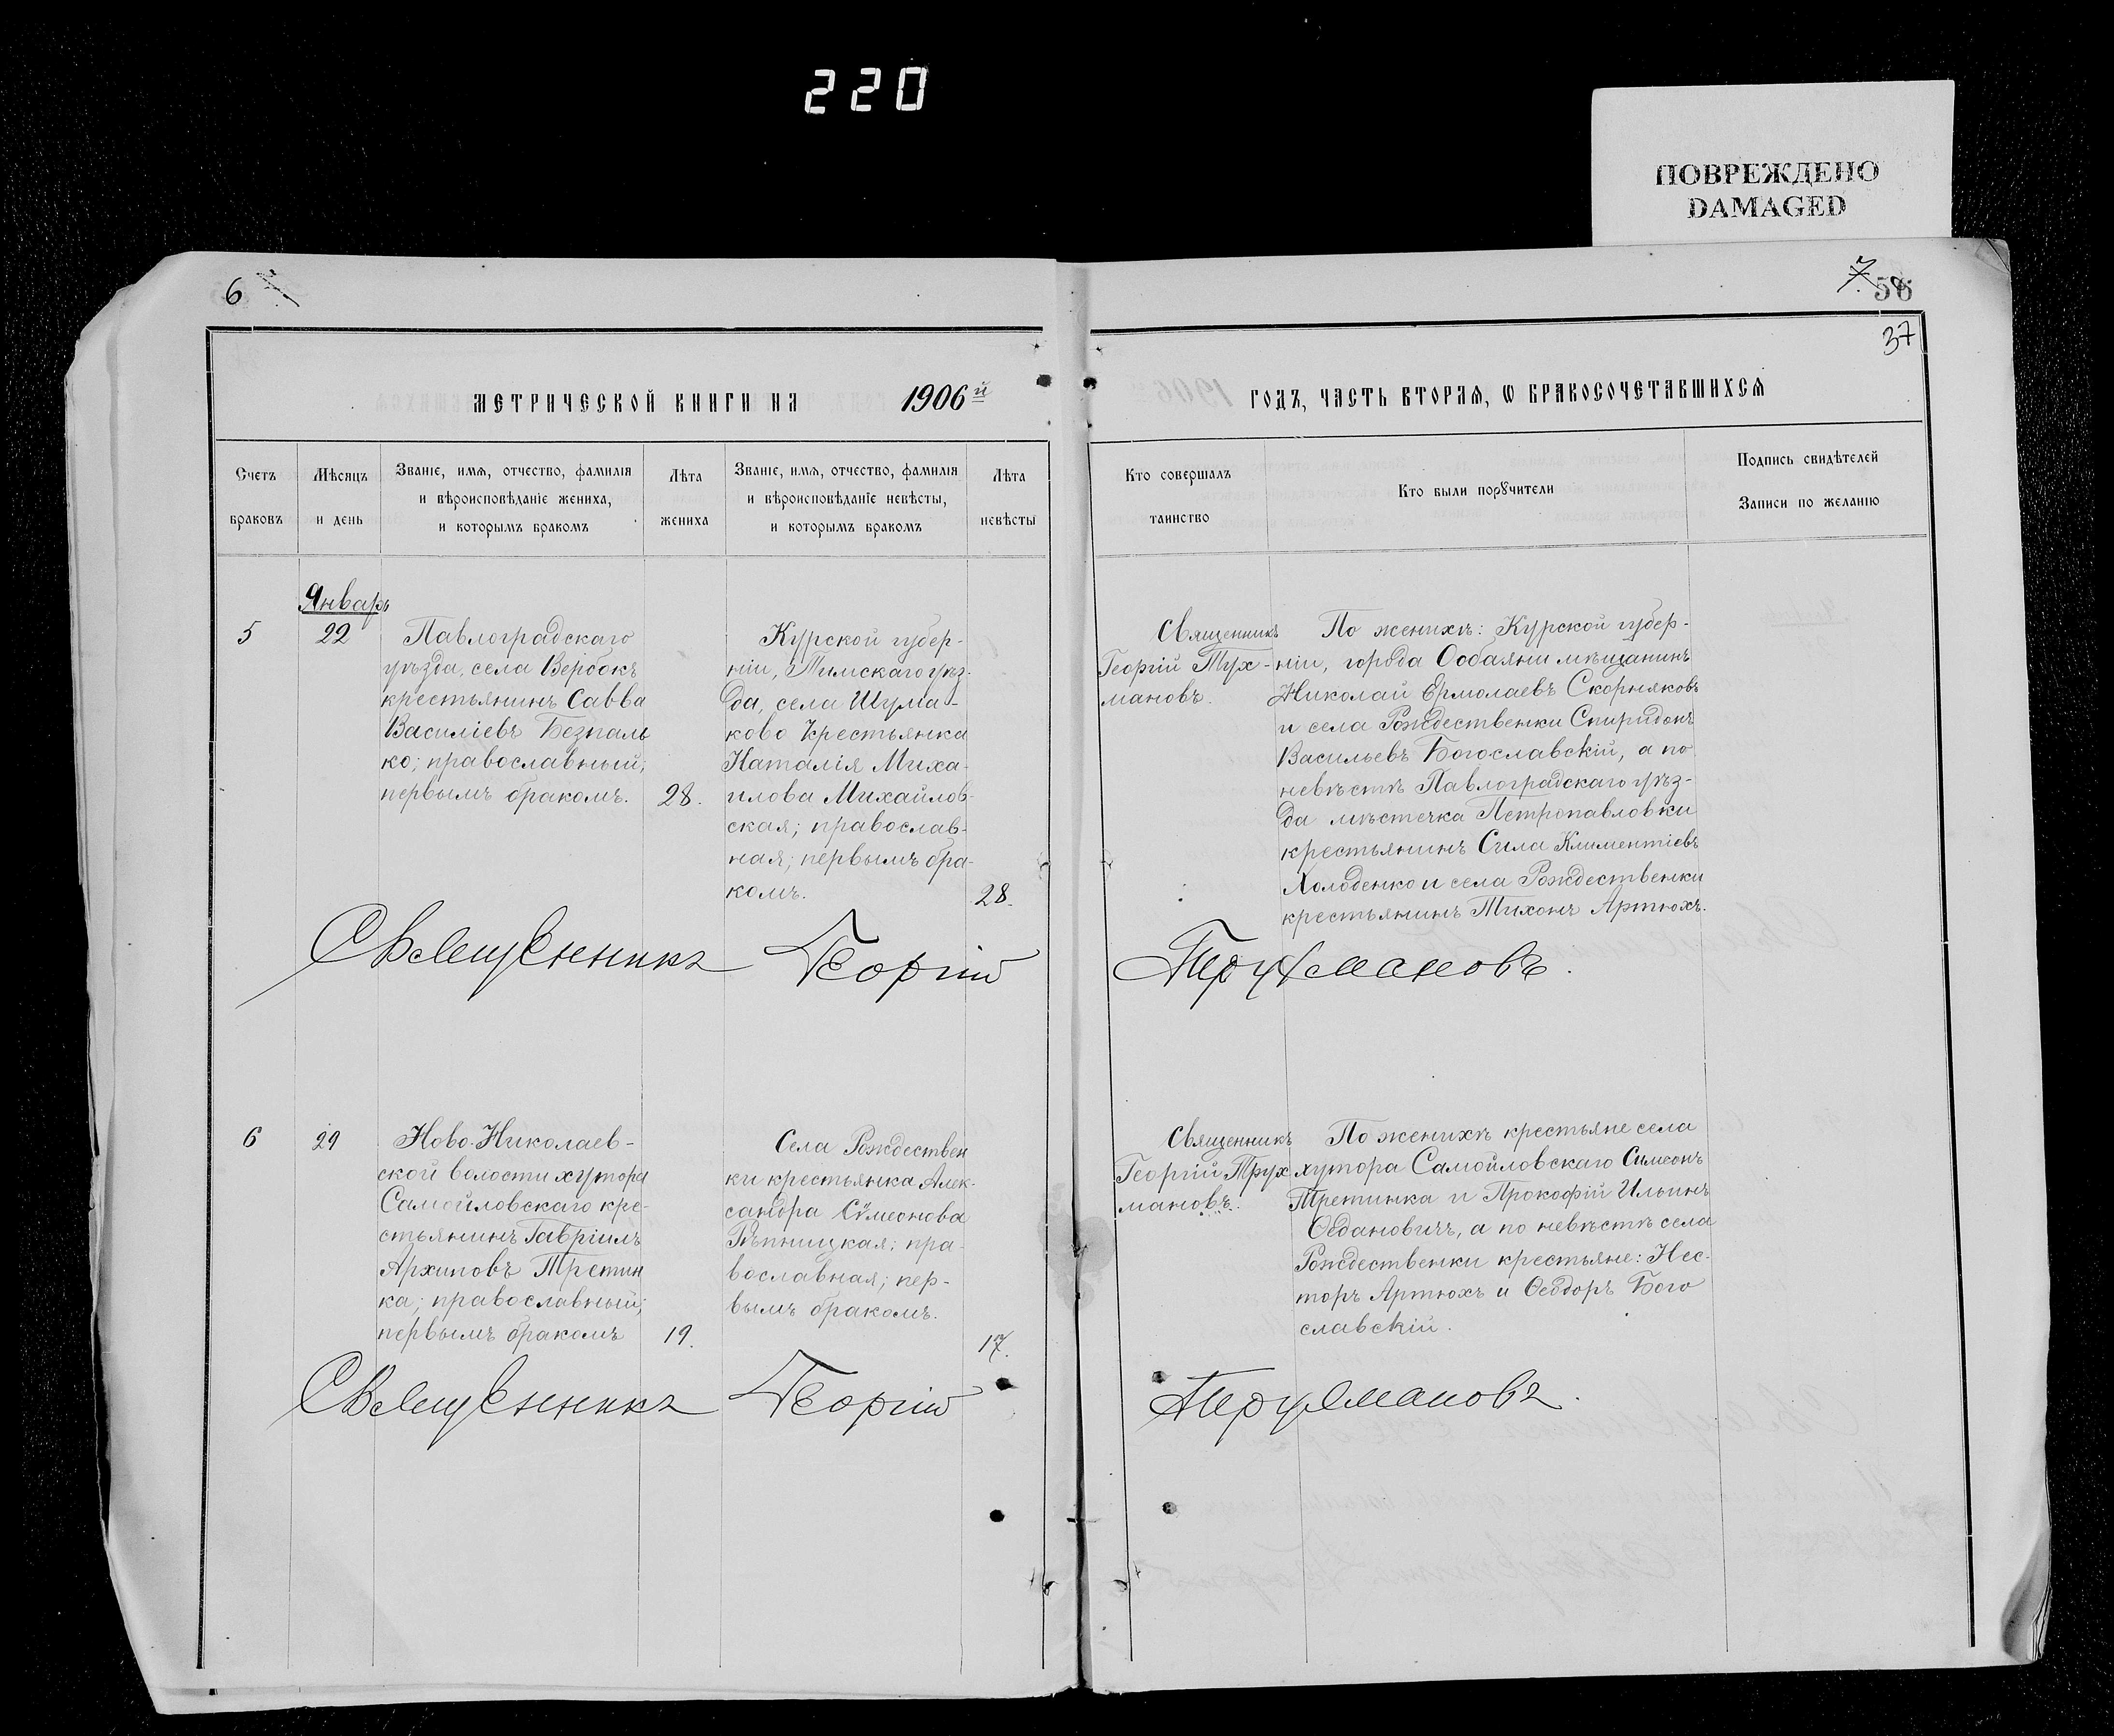 220
ПОВРЕЖДЕНО
DAMAGED
6
7
58
37
МЕТРИЧЕСКОЙ КНИГИ НА 1906й
ГОДЪ, ЧАСТЬ ВТОРАѦ, Ѡ БРАКОСОЧЕТАВШИХСѦ
Счетъ
браковъ
Мѣсяцъ
и день
Званіе, имѧ, отчество, фамилія
и вѣроисповѣданіе жениха,
и которымъ бракомъ
Лѣта
жениха
Званіе, имѧ, отчество, фамилія
и вѣроисповѣданіе невѣсты,
и которымъ бракомъ
Лѣта
невѣсты
Кто совершалъ
таинство
Кто были порꙋчители
Подпись свидѣтелей
Записи по желанію
Январь
5
22
Павлоградскаго
уѣзда, села Вербокъ
крестьянинъ Савва
Василіевъ Безпаль
ко; православный;
первымъ бракомъ.
28.
Курской губер-
ніи, Тимскаго уѣз-
да, села Шума-
ково крестьянка
Наталія Миха-
илова Михайлов-
ская; православ-
ная; первымъ бра-
комъ.
28.
Священникъ
Георгій Трух-
мановъ.
По женихѣ: Курской губер-
ніи, города Ообаяни мѣщанинъ
Николай Ермолаевъ Скорняковъ
и села Рождественки Спиридонъ
Васильевъ Богославскій, а по
невѣстѣ Павлоградскаго уѣз-
да мѣстечка Петропавловки
крестьянинъ Сила Климентіевъ
Холоденко и села Рождественки
крестьянинъ Тихонъ Артюхъ.
Священникъ Георгій Трухмановъ.
6
29
Ново-Николаев-
ской волости хутора
Самойловскаго кре-
стьянинъ Гавріилъ
Архиповъ Третин
ка; православный;
первымъ бракомъ
19.
Села Рождествен
ки крестьянка Алек-
сандра Сѵмеонова
Рѣпницкая; пра-
вославная; пер-
вымъ бракомъ.
17.
Священникъ
Георгій Трух
мановъ.
По женихѣ крестьяне села
хутора Самойловскаго Симеонъ
Третинка и Прокофій Ильинъ
а по невѣстѣ села
Рождественки крестьяне: Нес-
торъ Артюхъ и Ѳеодоръ Бого
славскій.
Священникъ Георгій Трухмановъ.